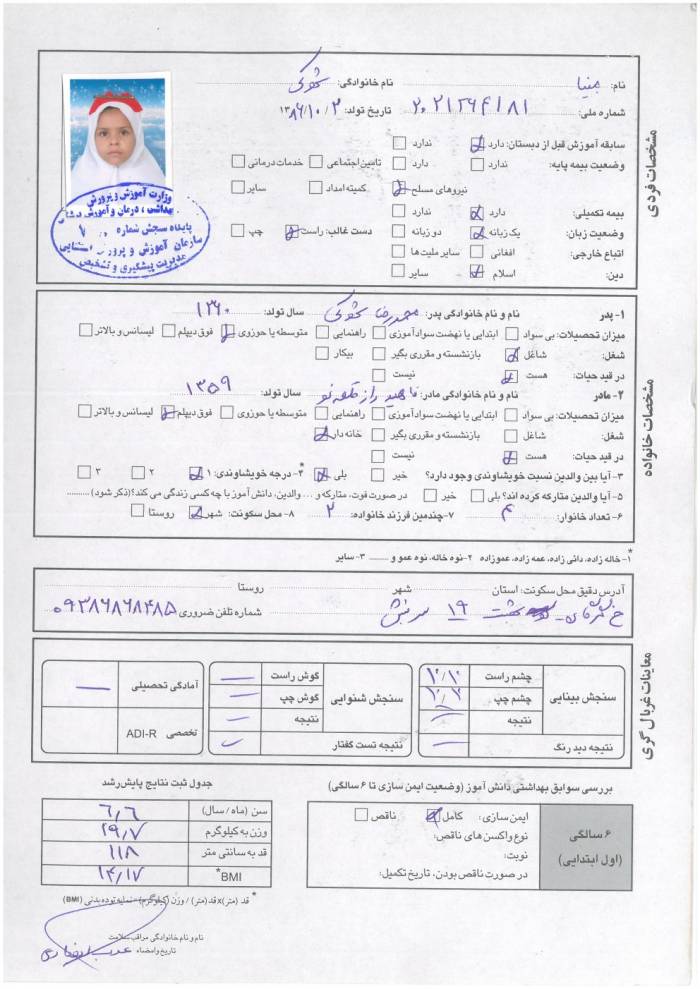 مشخصات فردی
نام: نام خانوادگی:
شماره ملی: تاریخ تولد: ۱۳۸۶/۱۰/۲
سابقه آموزش قبل از دبستان: دارد ندارد
وضعیت بیمه پایه: ندارد دارد تامین اجتماعی خدمات درمانی
نیروهای مسلح کمیته امداد سایر
بیمه تکمیلی: دارد ندارد
وضعیت زبان: یک زبانه دو زبانه دست غالب: راست چپ
اتباع خارجی: افغانی سایر ملیت ها
دین: اسلام سایر
وزارت آموزش و پرورش
پایگاه سنجش شماره
سازمان آموزش و پرورش استثنایی
مدیریت پیشگیری و تشخیص
مشخصات خانواده
۱- پدر نام و نام خانوادگی پدر: محمدرضا سال تولد: ۱۳۶۰
میزان تحصیلات: بی سواد ابتدایی یا نهضت سوادآموزی راهنمایی متوسطه یا حوزوی فوق دیپلم لیسانس و بالاتر
شغل: شاغل بازنشسته و مقرری بگیر بیکار
در قید حیات: هست نیست
۲- مادر نام و نام خانوادگی مادر: سال تولد: ۱۳۵۹
میزان تحصیلات: بی سواد ابتدایی یا نهضت سوادآموزی راهنمایی متوسطه یا حوزوی فوق دیپلم لیسانس و بالاتر
شغل: شاغل بازنشسته و مقرری بگیر خانه دار
در قید حیات: هست نیست
۳- آیا بین والدین نسبت خویشاوندی وجود دارد؟ خیر بلی ۴- درجه خویشاوندی:* ۱ ۲ ۳
۵- آیا والدین متارکه کرده اند؟ بلی خیر در صورت فوت، متارکه و ... والدین، دانش آموز با چه کسی زندگی می کند؟ (ذکر شود) ..........
۶- تعداد خانوار: ۴ ۷- چندمین فرزند خانواده: ۲ ۸- محل سکونت: شهر روستا
*۱- خاله زاده، دائی زاده، عمه زاده، عموزاده ۲- نوه خاله، نوه عمو و ........ ۳- سایر
آدرس دقیق محل سکونت: استان شهر روستا
۱۹ سرنبش شماره تلفن ضروری ۰۹۳۸۶۸۶۸۴۸۵
معاینات غربال گری
سنجش بینایی چشم راست ۱۰/۱۰
چشم چپ ۱۰/۱۰
نتیجه
نتیجه دید رنگ
سنجش شنوایی گوش راست
گوش چپ
نتیجه
نتیجه تست گفتار
آمادگی تحصیلی
تخصصی ADI-R
بررسی سوابق بهداشتی دانش آموز (وضعیت ایمن سازی تا ۶ سالگی)
۶ سالگی
(اول ابتدایی)
ایمن سازی: کامل ناقص
نوع واکسن های ناقص:
نوبت:
در صورت ناقص بودن، تاریخ تکمیل:
جدول ثبت نتایج پایش رشد
سن (ماه / سال) ۶٫۶
وزن به کیلوگرم ۲۹٫۷
قد به سانتی متر ۱۱۸
BMI*
*قد (متر)x قد(متر) / وزن (کیلوگرم) = نمایه توده بدنی (BMI)
نام و نام خانوادگی مراقب سلامت
تاریخ و امضاء